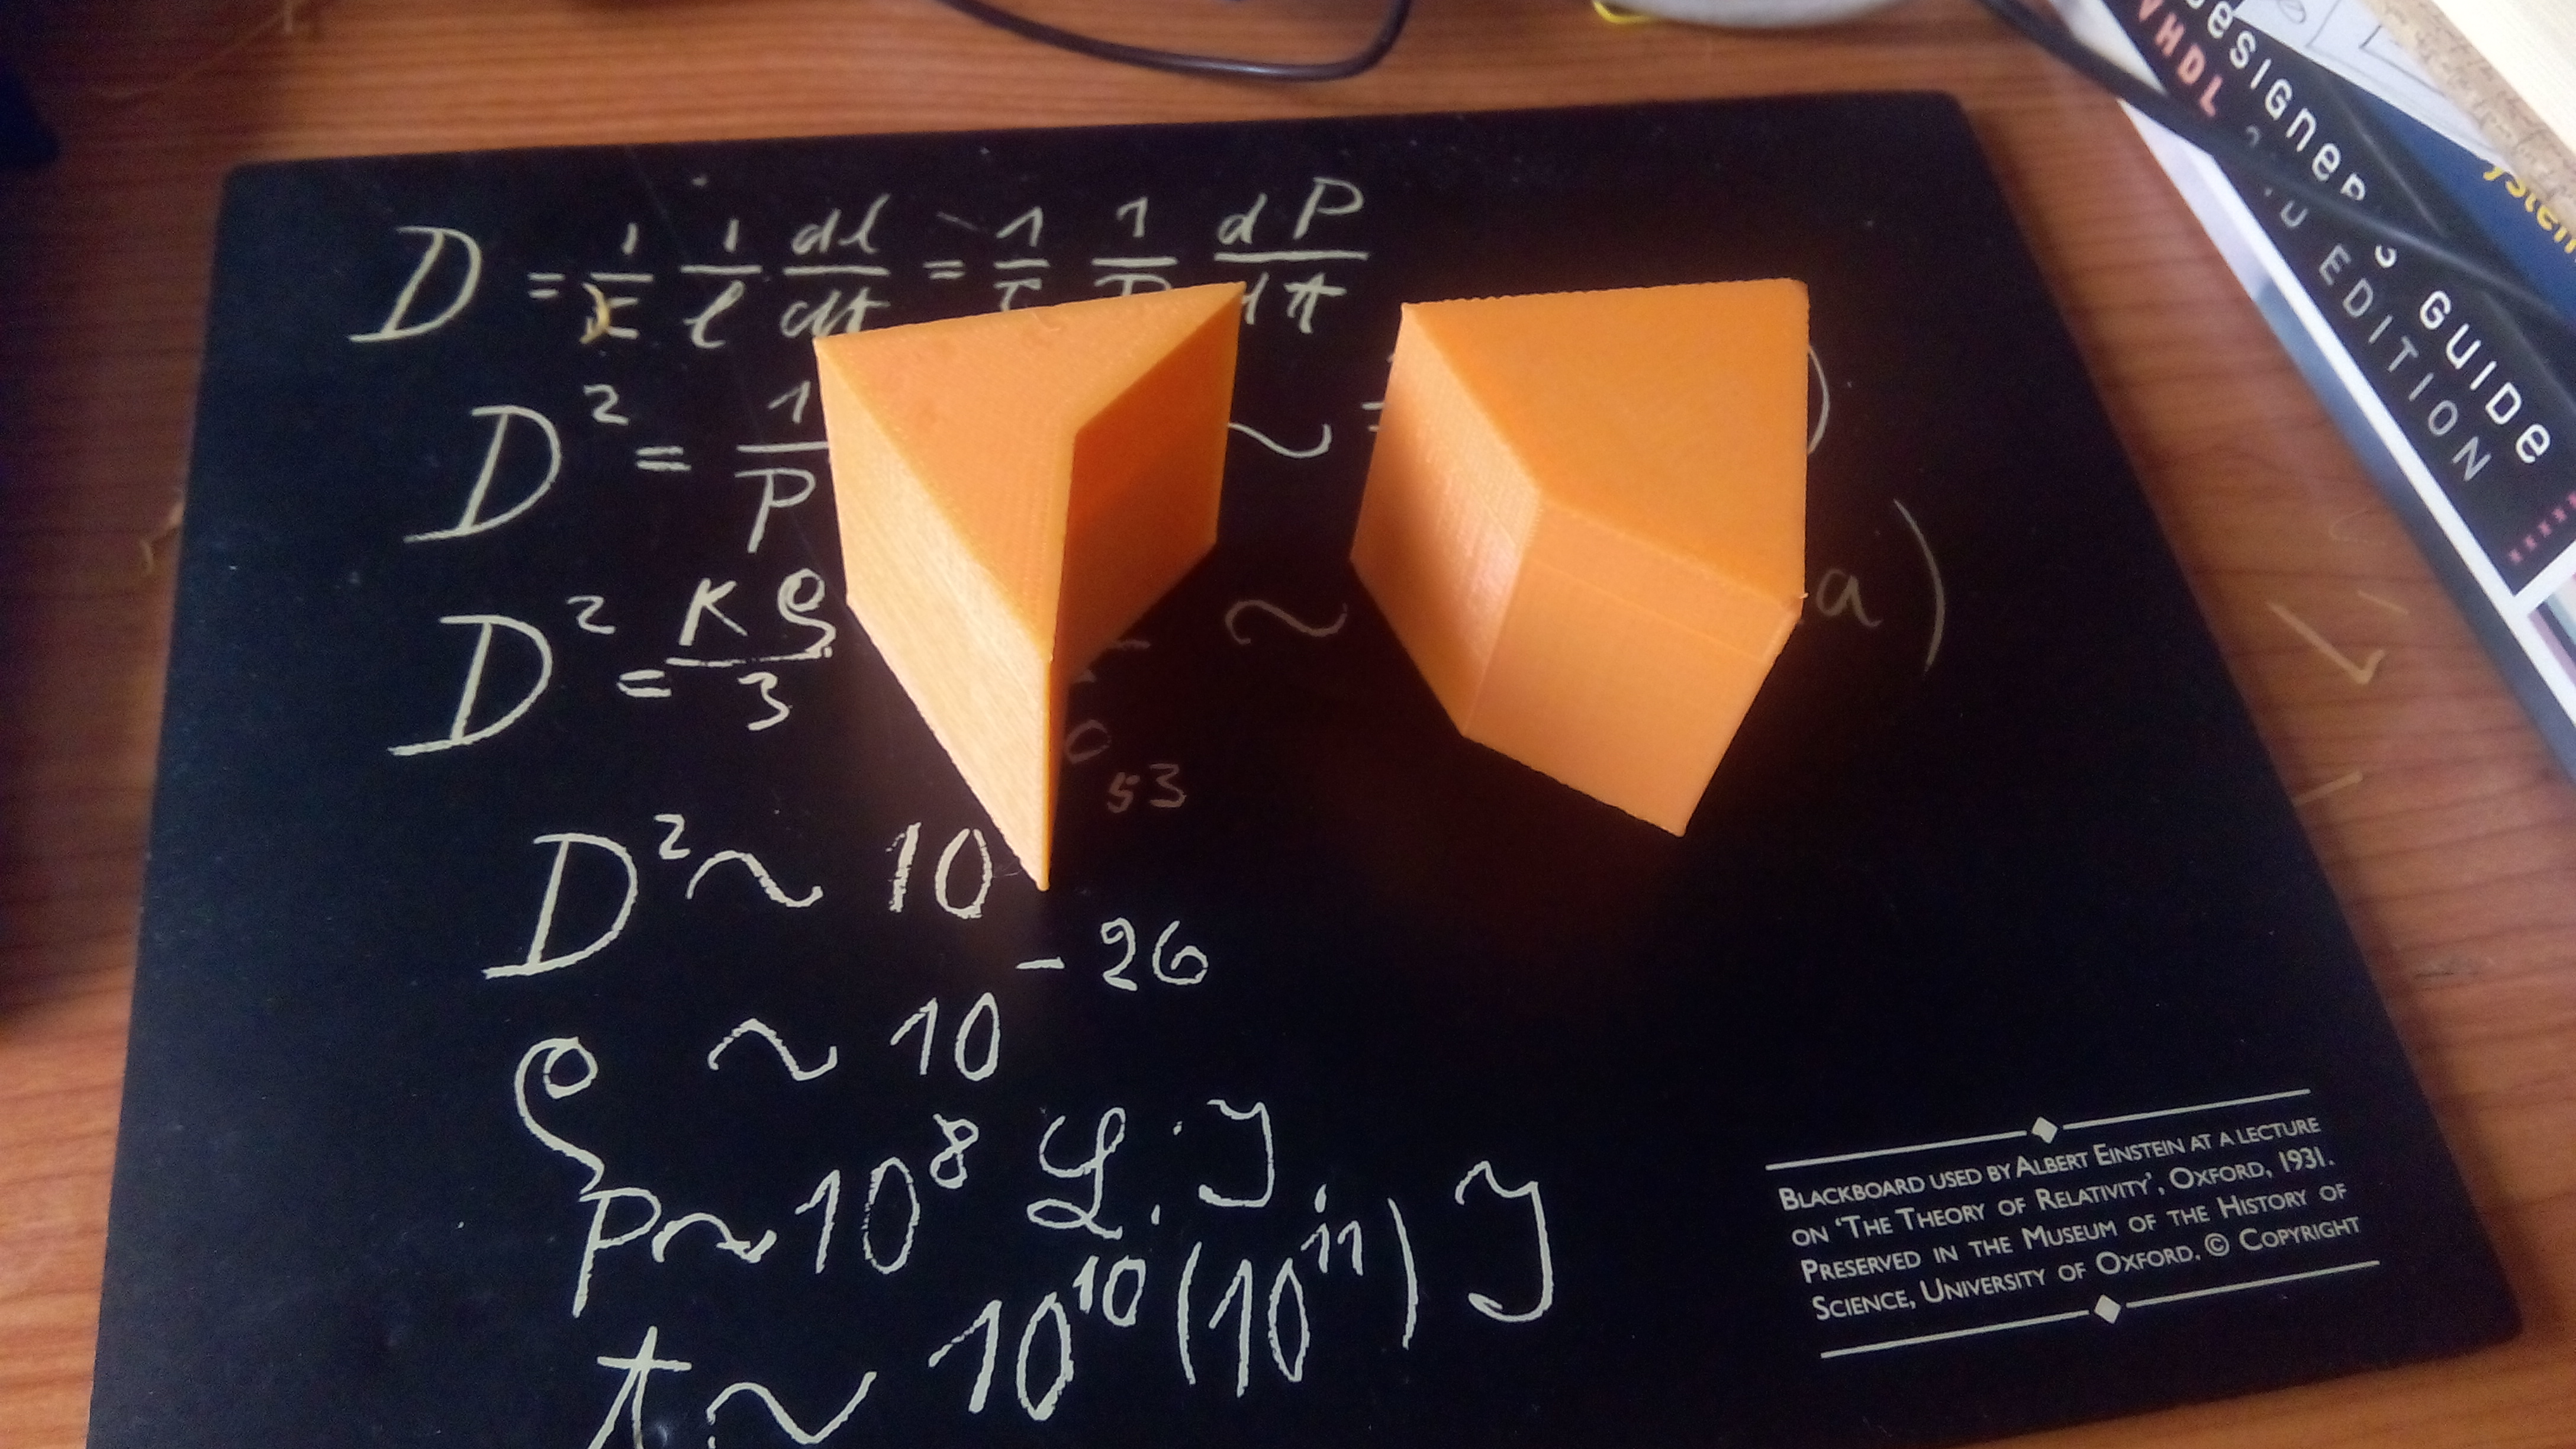 D = 1/c 1/l dl/dt = 1/c 1/P dP/dt
D² = 1/P ~
D² = κρ/3 ~ a)
D² ~ 10 53
ρ ~ 10 -26
P ~ 10⁸ L. J.
t ~ 10¹⁰ (10¹¹) J
BLACKBOARD USED BY ALBERT EINSTEIN AT A LECTURE
ON 'THE THEORY OF RELATIVITY', OXFORD, 1931.
PRESERVED IN THE MUSEUM OF THE HISTORY OF
SCIENCE, UNIVERSITY OF OXFORD. © COPYRIGHT
DESIGNER'S GUIDE
VHDL
EDITION